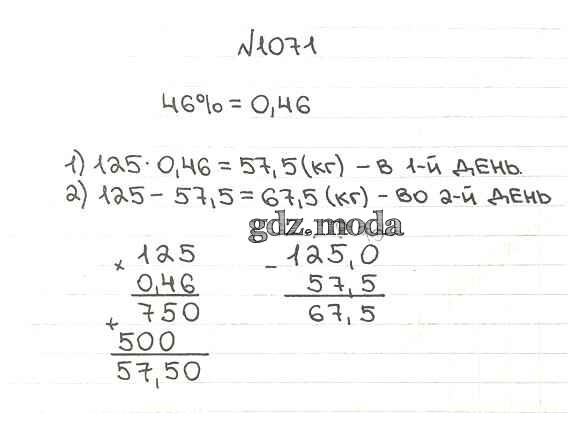 №1071
46% = 0,46
1) 125 · 0,46 = 57,5 (кг) – в 1-й день.
2) 125 – 57,5 = 67,5 (кг) – во 2-й день
gdz.moda
× 125
0,46
750
+
500
57,50
– 125,0
57,5
67,5